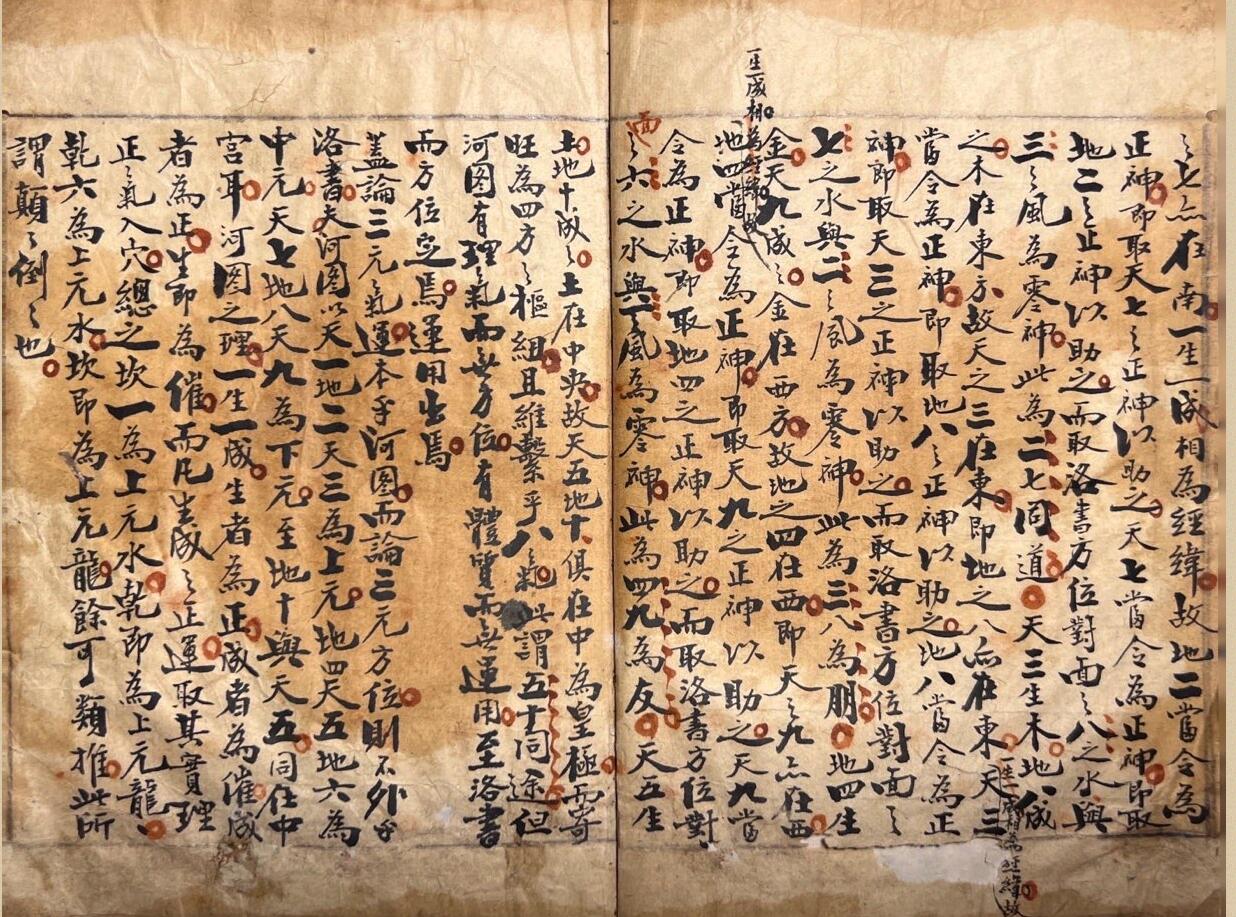 之七亦在南一生一成相為經緯故地二當令為
正神即取天七之正神以助之天七當令為正神即取
地二之正神以助之而取洛書方位對面之八之水與
三之風為零神此為二七同道天三生木地八成
之木在東方故天之三在東即地之八亦在東天三
一生一成相為經緯故
當令為正神即取地八之正神以助之地八當令為正
神即取天三之正神以助之而取洛書方位對面之
七之水與二之風為零神此為三八為朋地四生
金天九成之金在西方故地之四在西即天之九亦在西
一生一成相為經緯故
地四當令為正神即取天九之正神以助之天九當
令為正神即取地四之正神以助之而取洛書方位對
面
之六之水與一之風為零神此為四九為友天五生
土地十成之土在中央故天五地十俱在中為皇極而寄
旺為四方之樞紐且維繫乎八之氣此謂五十同途但
河图有理氣而無方位有體質而無運用至洛書
而方位定焉運用出焉
蓋論三元之氣運本乎河图而論三元方位則不外乎
洛書夫河图以天一地二天三為上元地四天五地六為
中元天七地八天九為下元至地十與天五同仕中
宮耳河图之理一生一成生者為正成者為催成
者為正生即為催而凡生成之正運取其實理
正之氣入穴總之坎一為上元水乾即為上元龍
乾六為上元水坎即為上元龍餘可類推此所
謂顛之倒之也